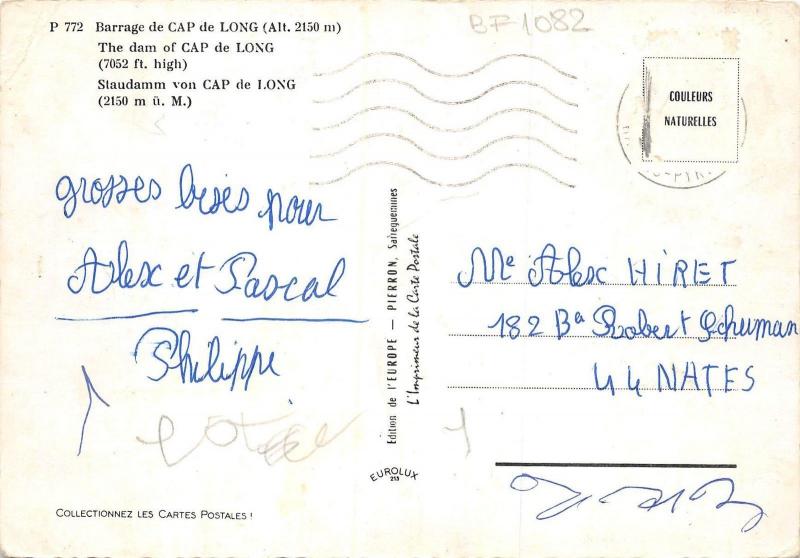 P 772 Barrage de CAP de LONG (Alt. 2150 m)
The dam of CAP de LONG
(7052 ft. high)
Staudamm von CAP de LONG
(2150 m ü. M.)
BF1082
COULEURS
NATURELLES
grosses bises pour
Alex et Pascal
Philippe
Edition de l'EUROPE — PIERRON, Sarreguemines
L'Imprimeur de la Carte Postale
EUROLUX
213
Me Alex HIRET
182 Bd Robert Schuman
44 NATES
1
COLLECTIONNEZ LES CARTES POSTALES !